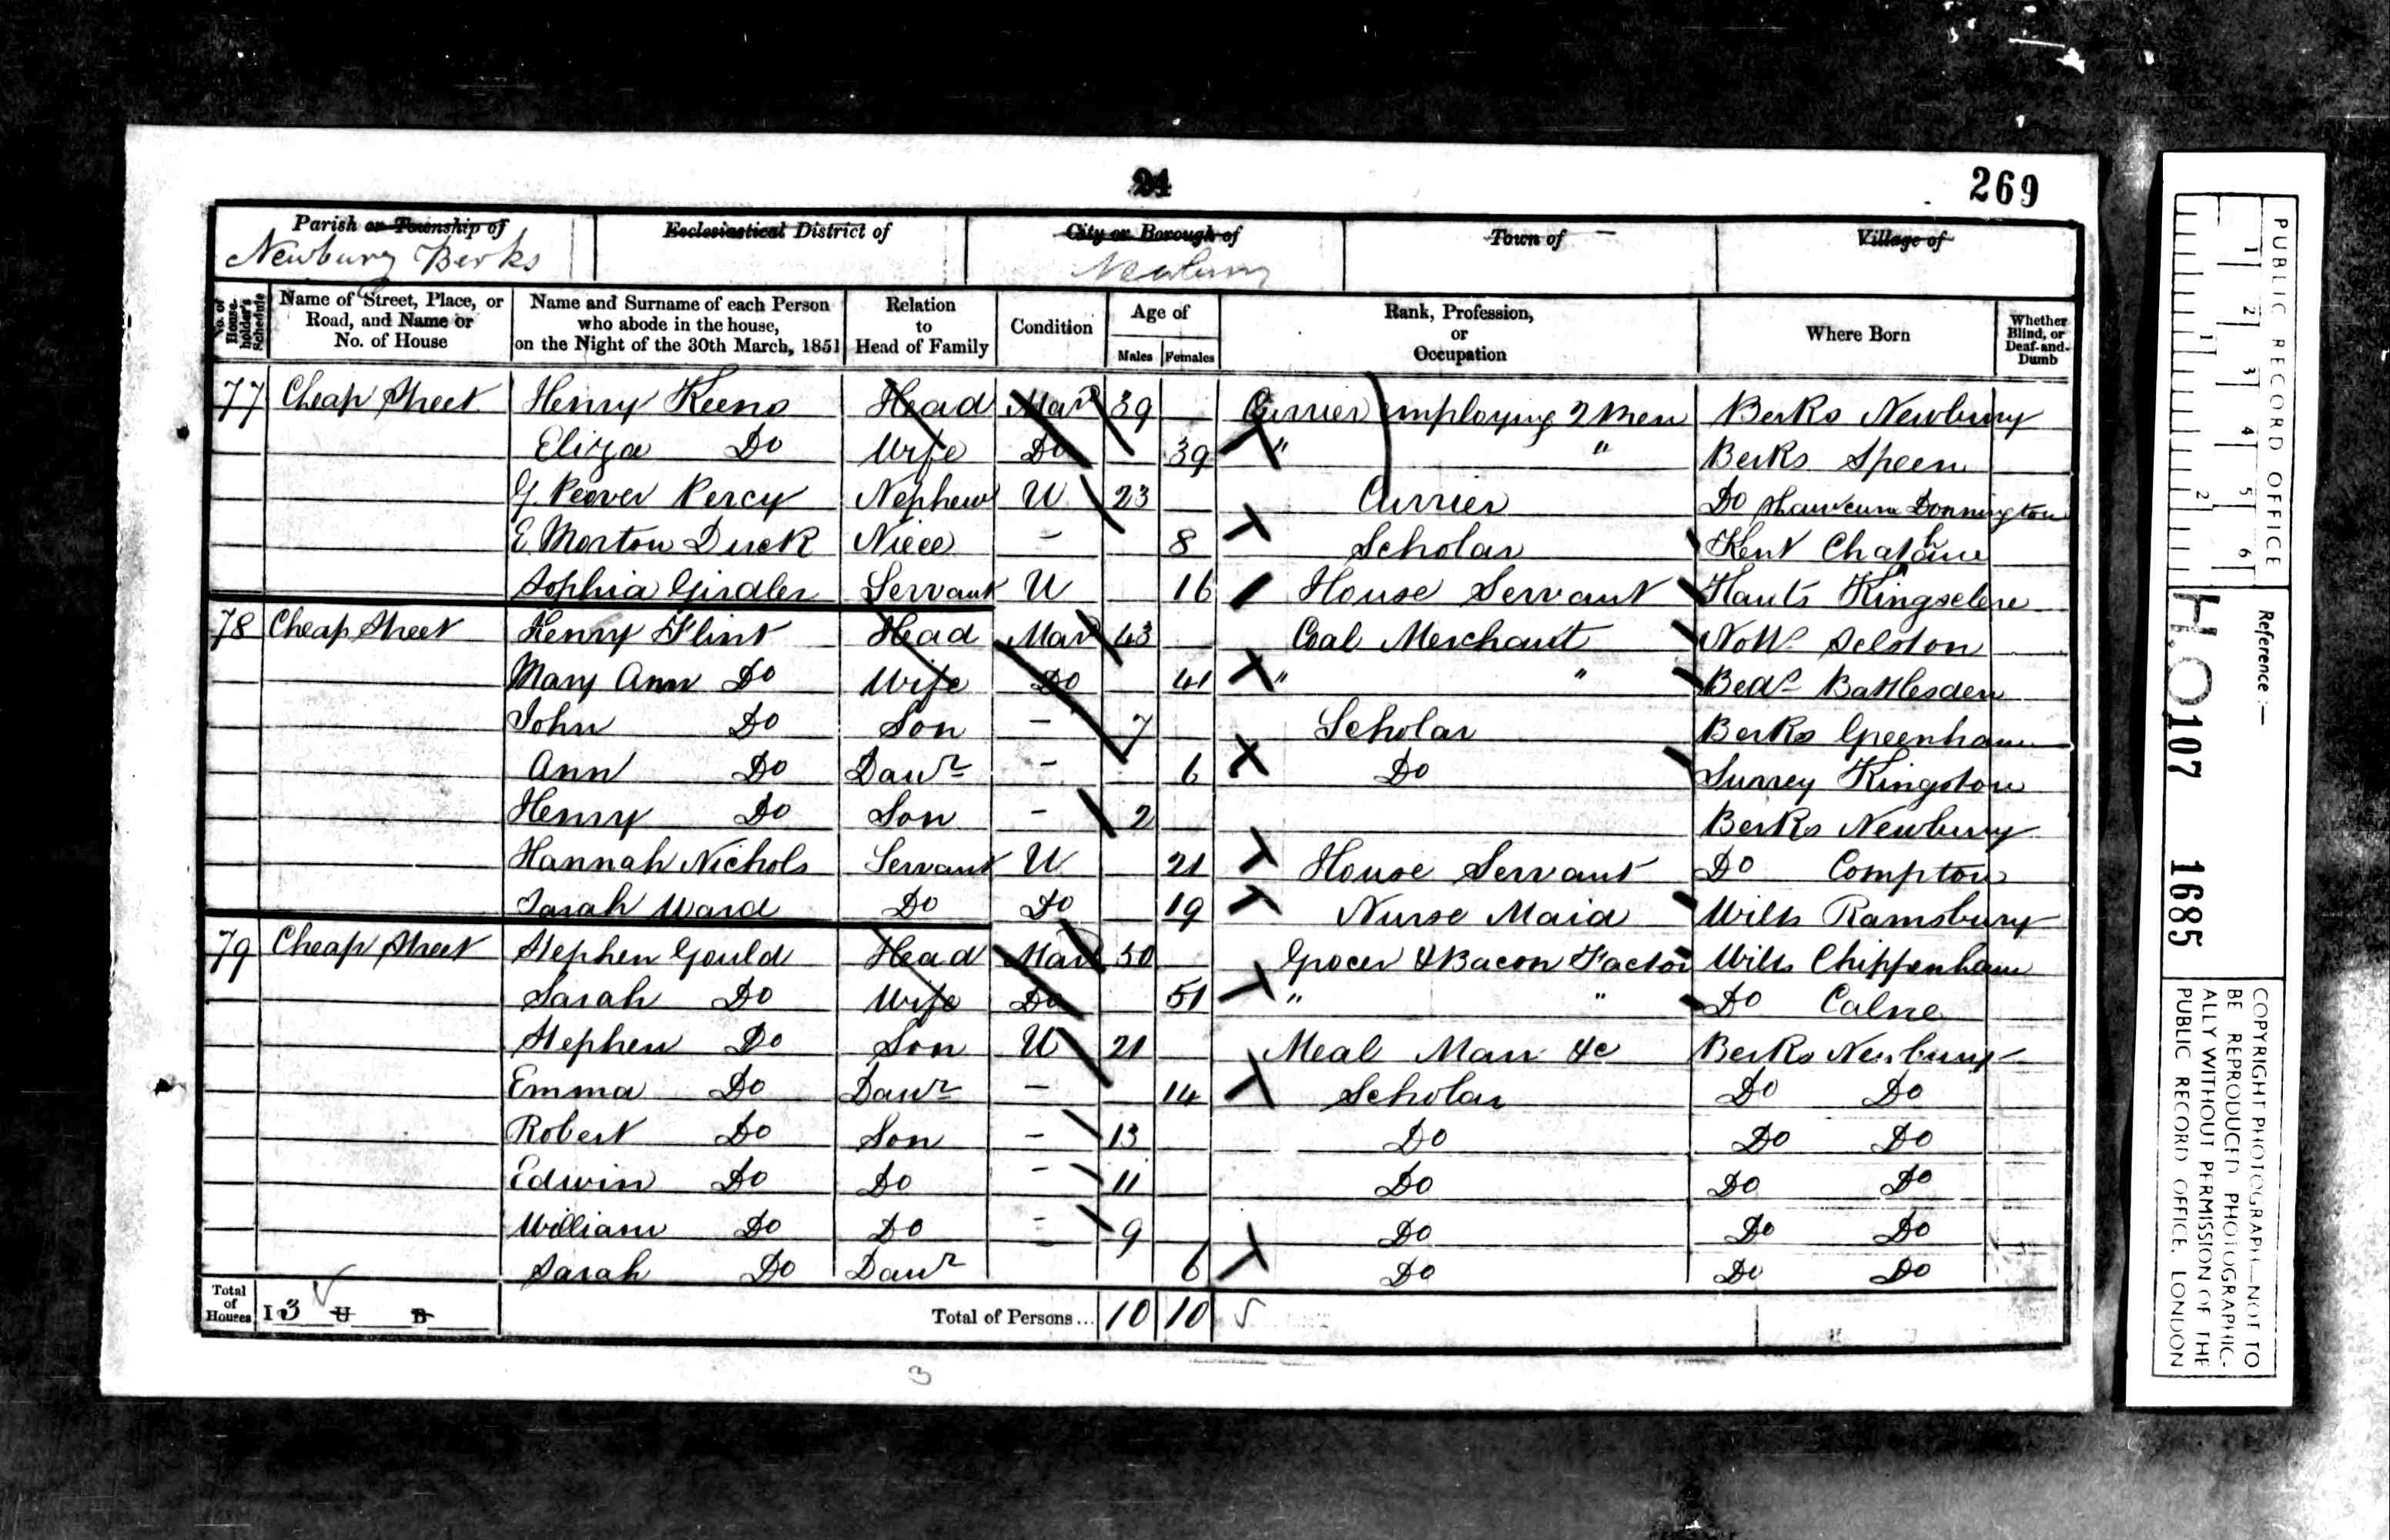 24
269
Parish or Township of
Newbury Berks
Ecclesiastical District of
City or Borough of
Newbury
Town of
Village of
No. of House-holder's Schedule
Name of Street, Place, or Road, and Name or No. of House
Name and Surname of each Person who abode in the house, on the Night of the 30th March, 1851
Relation to Head of Family
Condition
Age of
Males Females
Rank, Profession, or Occupation
Where Born
Whether Blind, or Deaf-and-Dumb
77 Cheap Street Henry Keens Head Mar 39 Currier employing 2 Men Berks Newbury
Eliza Do Wife Do 39 " " Berks Speen
G Peover Percy Nephew U 23 Currier Do Shaw cum Donnington
E Morton Duck Niece - 8 Scholar Kent Chatham
Sophia Girdler Servant U 16 House Servant Hants Kingsclere
78 Cheap Street Henry Flint Head Mar 43 Coal Merchant Notts Selston
Mary Ann Do Wife Do 41 " " Beds Battlesden
John Do Son - 7 Scholar Berks Greenham
Ann Do Dawr - 6 Do Surrey Kingston
Henry Do Son - 2 Berks Newbury
Hannah Nichols Servant U 21 House Servant Do Compton
Sarah Ward Do Do 19 Nurse Maid Wilts Ramsbury
79 Cheap Street Stephen Gould Head Mar 50 Grocer & Bacon Factor Wilts Chippenham
Sarah Do Wife Do 51 " " Do Calne
Stephen Do Son U 21 Meal Man &c Berks Newbury
Emma Do Dawr - 14 Scholar Do Do
Robert Do Son - 13 Do Do Do
Edwin Do Do - 11 Do Do Do
William Do Do - 9 Do Do Do
Sarah Do Dawr 6 Do Do Do
Total of Houses I 3 U B Total of Persons... 10 10
3
PUBLIC RECORD OFFICE
1 2 3 4 5 6
1 2
Reference:-
H.O 107 1685
COPYRIGHT PHOTOGRAPH—NOT TO
BE REPRODUCED PHOTOGRAPHIC-
ALLY WITHOUT PERMISSION OF THE
PUBLIC RECORD OFFICE, LONDON